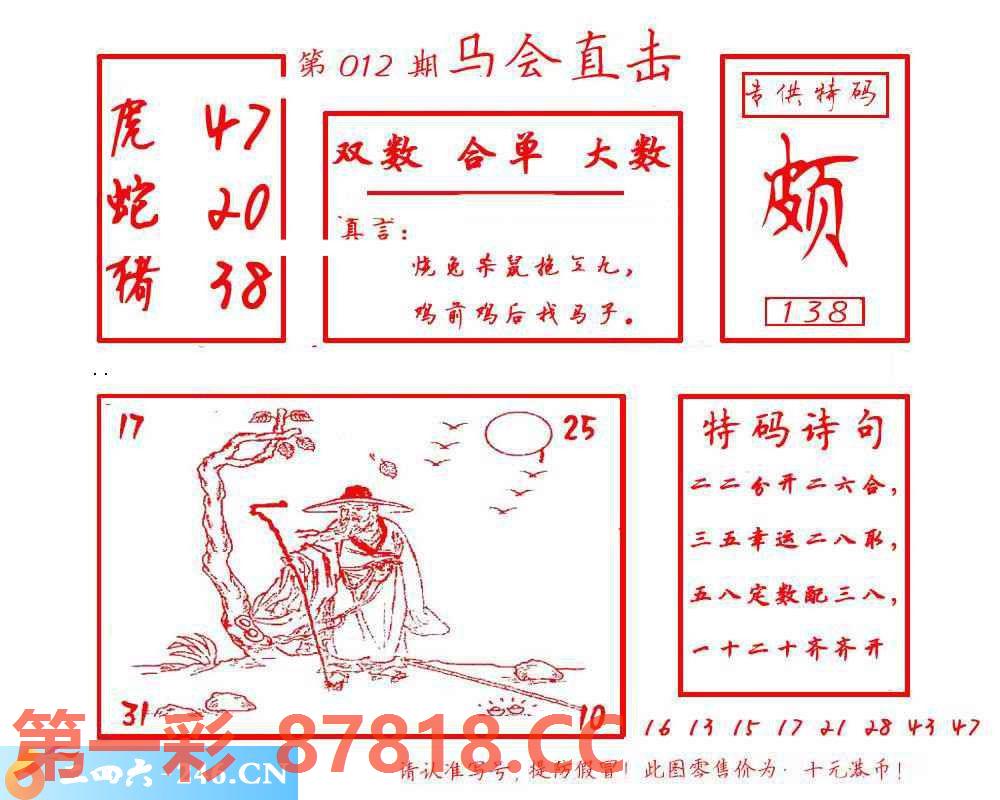 第 012 期 马会直击
虎 47
蛇 20
猪 38
双数 合单 大数
真言：
烧兔杀鼠拖三九，
鸡前鸡后找马子。
专供特码
颇
138
17
25
31
10
特码诗句
二二分开二六合，
三五幸运二八取，
五八定数配三八，
一十二十齐齐开
16 13 15 17 21 28 43 47
第一彩 87818.CC
二四六-246.CN
请认准写号，提防假冒！此图零售价为·十元港币！